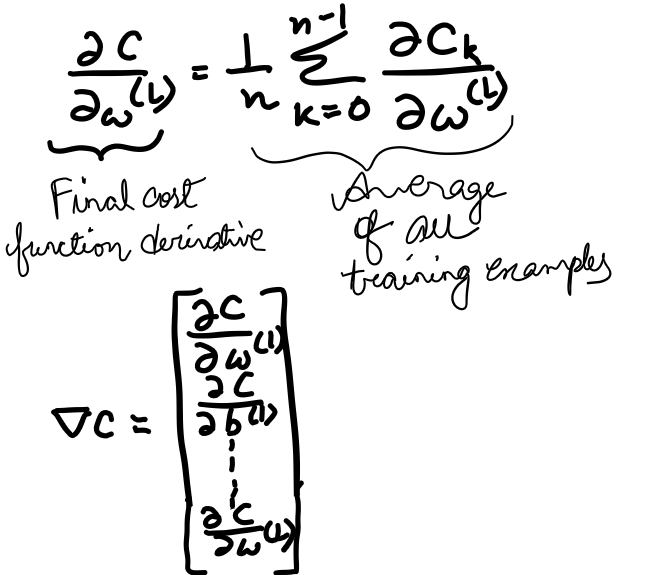 ∂C/∂ω^(L) = 1/n Σ_{k=0}^{n-1} ∂C_k/∂ω^(L)
Final cost
function derivative
Average
of all
training examples
∇C = [
∂C/∂ω^(1)
∂C/∂b^(1)
⋮
∂C/∂ω^(L)
]